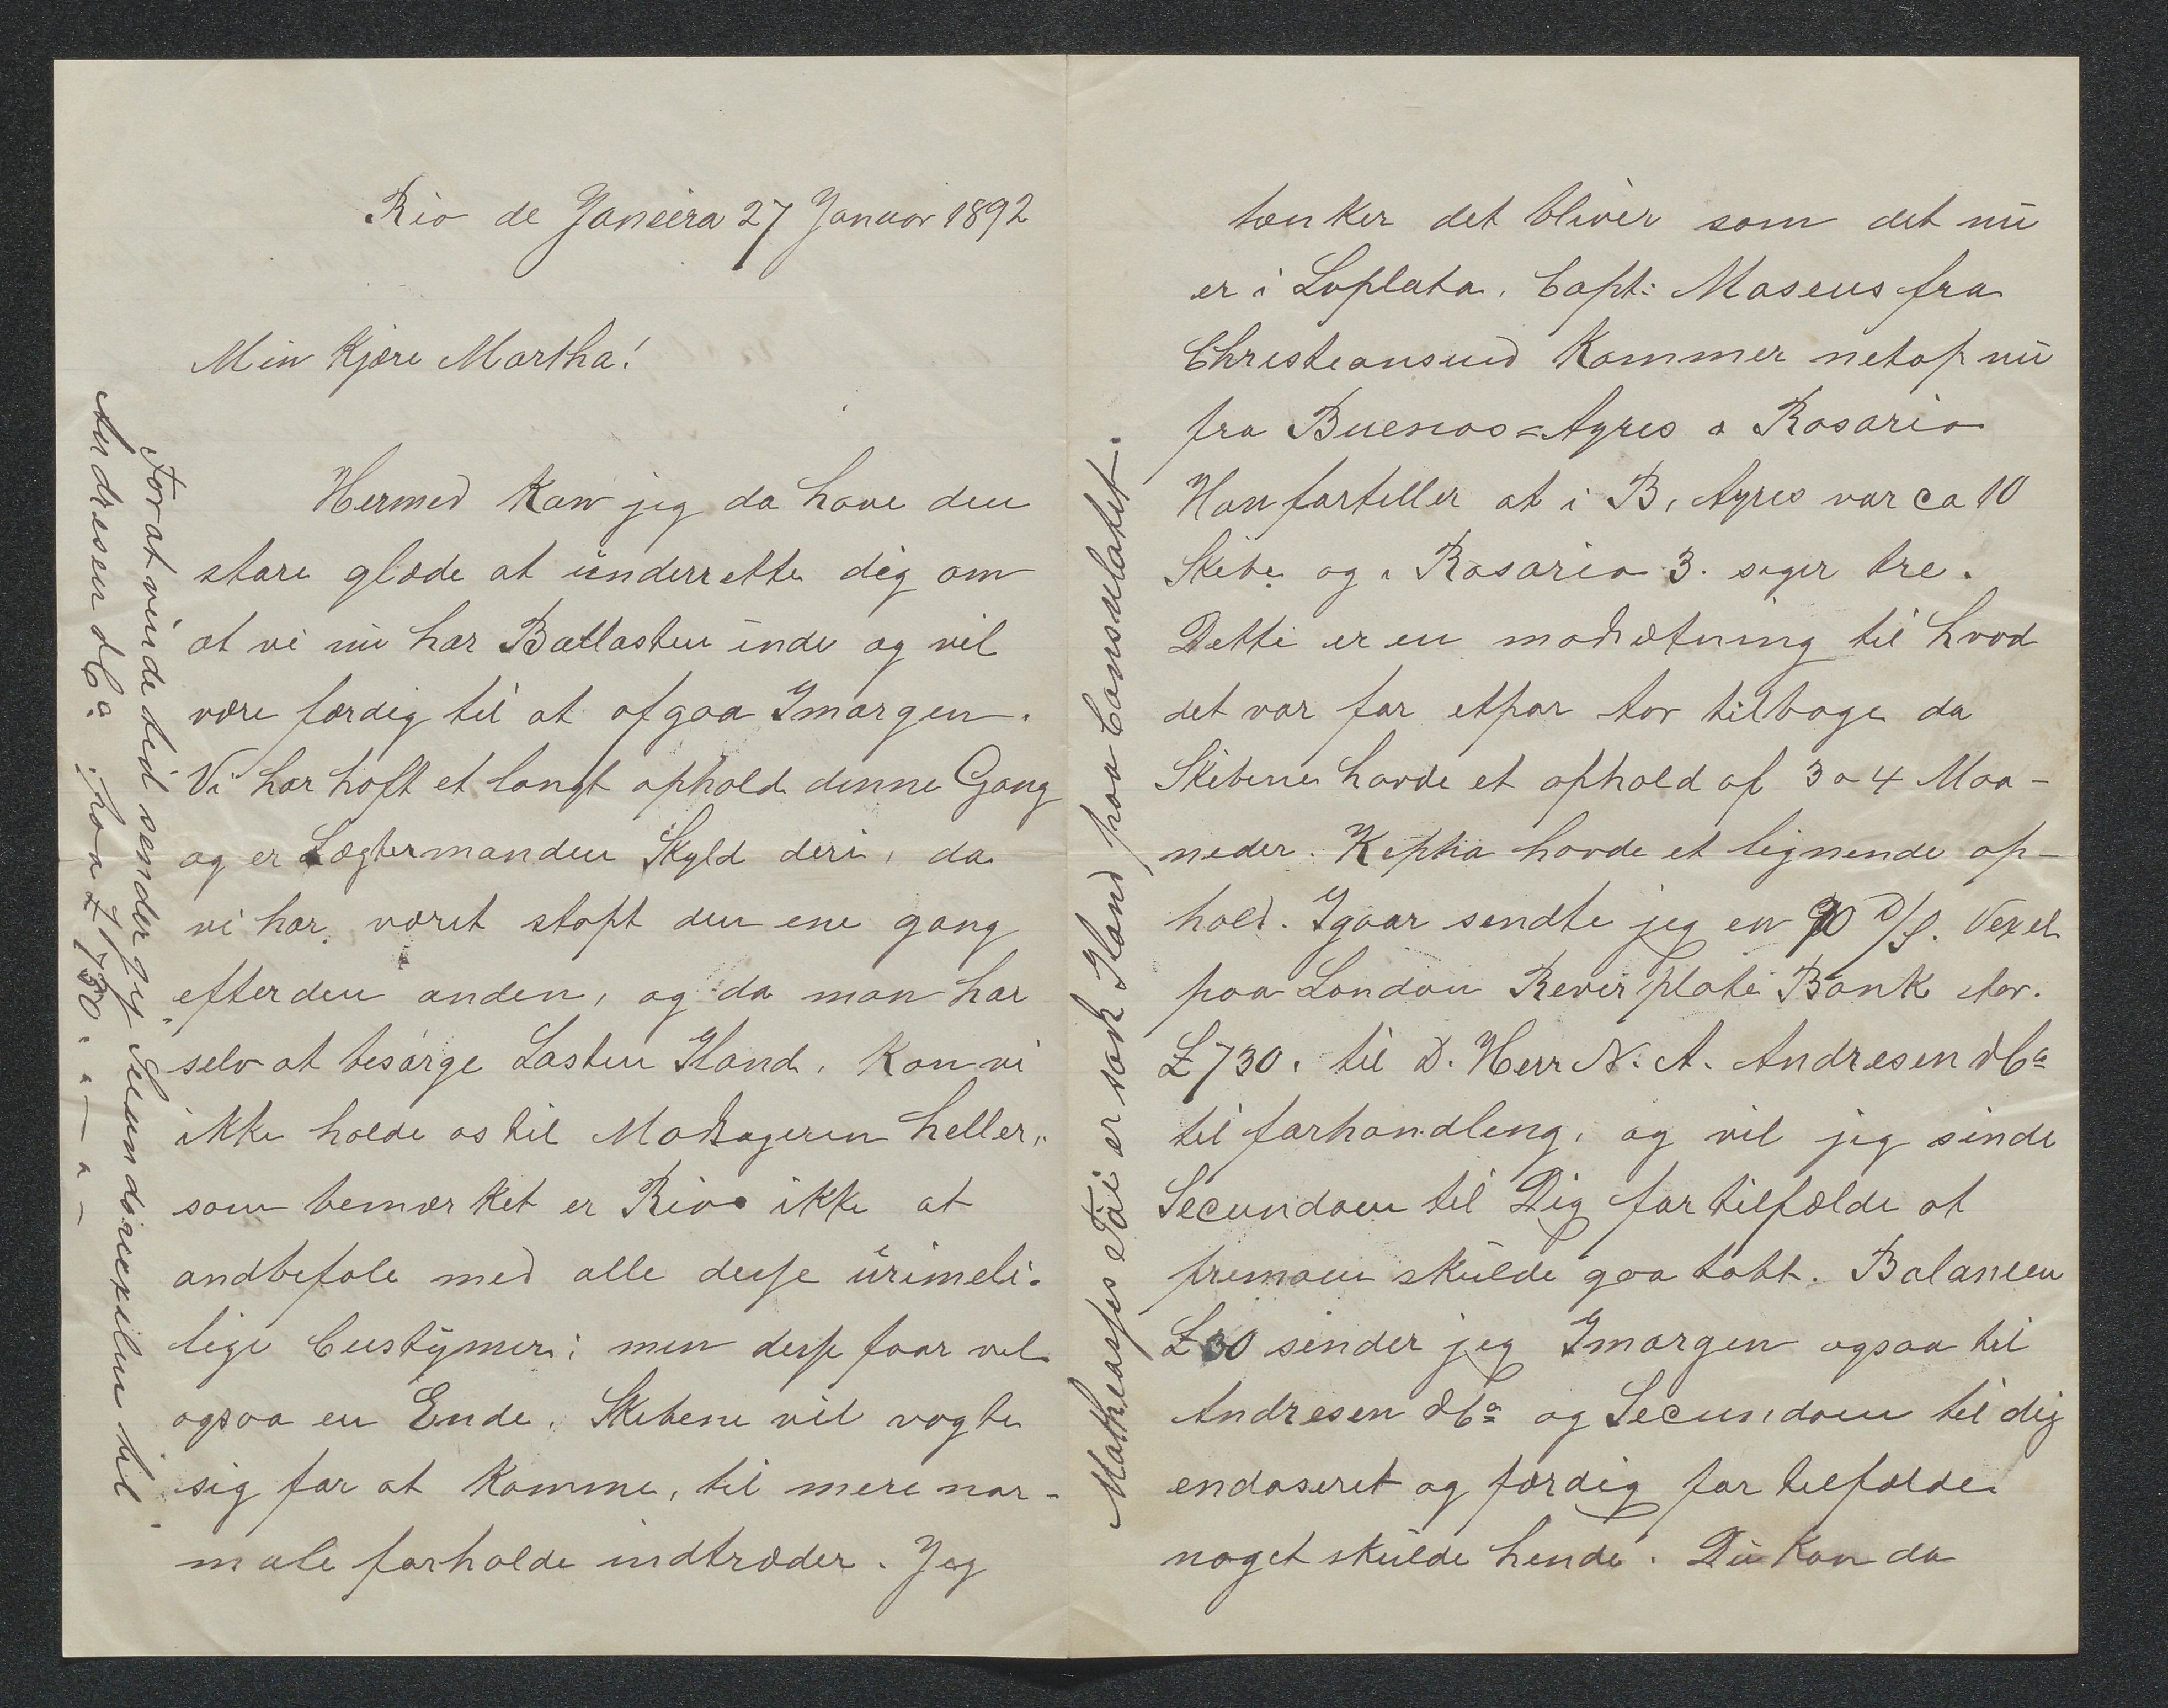 Rio de Janeira 27 Januar 1892
Min Kjære Martha!
Hermed Kan jeg da have den
store glæde at underrette dig om
at vi nu har Ballasten inde og vil
være færdig til at afgaa Imorgen.
Vi har haft et langt ophold denne Gang
og er Lægtermanden Skyld deri, da
vi har været stopt den ene gang
efter den anden, og da man har
selv at besørge Lasten Iland, Kan vi
ikke holde os til Modtageren heller,
som bemærket er Rio ikke at
andbefale med alle desse urimeli-
lige Custymer; men desse faar vel
ogsaa en Ende. Skibene vil vogte
sig for at Komme, til mere nor-
male forholde indtræder. Jeg
For at vinde tid sender jeg Secundavexilen til
Andresen & Co. paa £ 730. " — " —
tænker det bliver som det nu
er i Laplata. Capt: Maseus fra
Christiansund Kommer netop nu
fra Buenos=Ayres & Rosario
Han forteller at i B, Ayres var ca 10
Skibe og i Rosario 3. siger tre.
Dette er en modsætning til hvad
det var for etpar Aar tilbage da
Skibene havde et ophold af 3 a 4 Maa-
neder. Kepha havde et lignende op-
hold. Igaar sendte jeg en 90 D/S. Vexel
paa London River plate Bank stor.
£ 730. til D. Herr N. A. Andresen & Co
til forhandling, og vil jeg sende
Secundaen til Dig for tilfælde at
primaen skulde gaa tabt. Balancen
£ 30 sender jeg Imorgen ogsaa til
Andresen & Co og Secundaen til dig
endoseret og færdig for tilfælde
noget skulde hende. Du Kan da
Matheasses Tøi er sat Iland paa Consulatet.